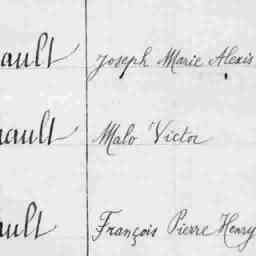 ault Joseph Marie Alexis
nault Malo Victor
ault François Pierre Henry